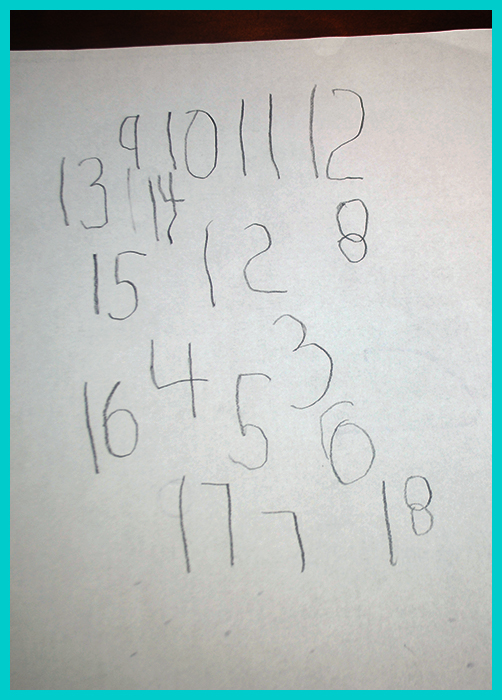 9 10 11 12
13 14
8
15 1 2
4 3
16 5 6
17 7 18